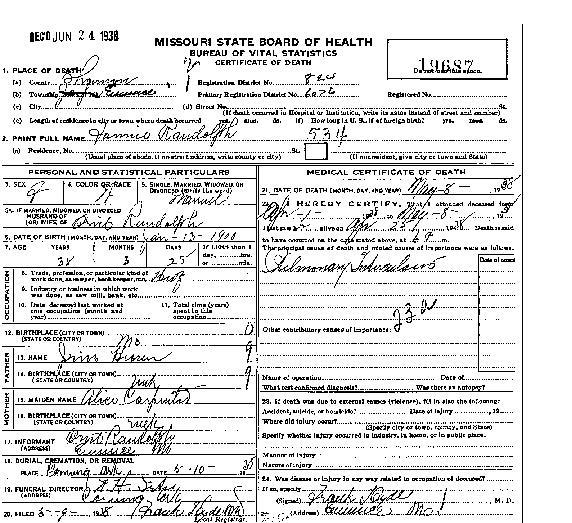 REC'D JUN 24 1938
MISSOURI STATE BOARD OF HEALTH
BUREAU OF VITAL STATISTICS
CERTIFICATE OF DEATH
19687
Do not use this space.
1. PLACE OF DEATH
(a) County Shannon Registration District No. 824
(b) Township Eminence Primary Registration District No. 6076 Registered No.
(c) City (d) Street No. St.
(If death occurred in Hospital or Institution, write its name instead of street and number)
(e) Length of residence in city or town where death occurred yrs. mos. ds. (f) How long in U. S., if of foreign birth? yrs. mos. ds.
2. PRINT FULL NAME Randolph 534
(a) Residence, No. St.
(Usual place of abode, if no street address, write county or city) (If nonresident, give city or town and State)
PERSONAL AND STATISTICAL PARTICULARS
3. SEX 4. COLOR OR RACE 5. SINGLE, MARRIED, WIDOWED, OR DIVORCED (write the word)
F W Married
5A. IF MARRIED, WIDOWED, OR DIVORCED
HUSBAND OF
(OR) WIFE OF Randolph
6. DATE OF BIRTH (MONTH, DAY, AND YEAR) Jan-13-1900
7. AGE YEARS MONTHS DAYS If LESS than 1
day, hrs.
38 3 25 or min.
OCCUPATION
8. Trade, profession, or particular kind of
work done, as sawyer, bookkeeper, etc.
9. Industry or business in which work
was done, as saw mill, bank, etc.
10. Date deceased last worked at
this occupation (month and
year)
11. Total time (years)
spent in this
occupation
12. BIRTHPLACE (CITY OR TOWN)
(STATE OR COUNTRY) Mo
FATHER
13. NAME
14. BIRTHPLACE (CITY OR TOWN)
(STATE OR COUNTRY)
MOTHER
15. MAIDEN NAME Alice
16. BIRTHPLACE (CITY OR TOWN)
(STATE OR COUNTRY)
17. INFORMANT Randolph
(ADDRESS) Eminence Mo
18. BURIAL, CREMATION, OR REMOVAL
PLACE Corning Ark DATE 5-10- 38
19. FUNERAL DIRECTOR
(ADDRESS) Corning Ark
20. FILED 5-9- 1938 Frank Hyde MD
Local Registrar.
MEDICAL CERTIFICATE OF DEATH
21. DATE OF DEATH (MONTH, DAY, AND YEAR) May-8- 1938
22. I HEREBY CERTIFY, That I attended deceased from
Apr-1- 1938 to May-8- 1938
I last saw alive on Apr 1938 Death is said
to have occurred on the date stated above, at
The principal cause of death and related causes of importance were as follows:
Date of onset
Pulmonary Tuberculosis
23a
Other contributory causes of importance:
Name of operation Date of
What test confirmed diagnosis? Was there an autopsy?
23. If death was due to external causes (violence), fill in also the following:
Accident, suicide, or homicide? Date of injury , 19
Where did injury occur?
(Specify city or town, county, and State)
Specify whether injury occurred in industry, in home, or in public place.
Manner of injury
Nature of injury
24. Was disease or injury in any way related to occupation of deceased?
If so, specify
(Signed) Frank Hyde M. D.
(Address) Eminence Mo